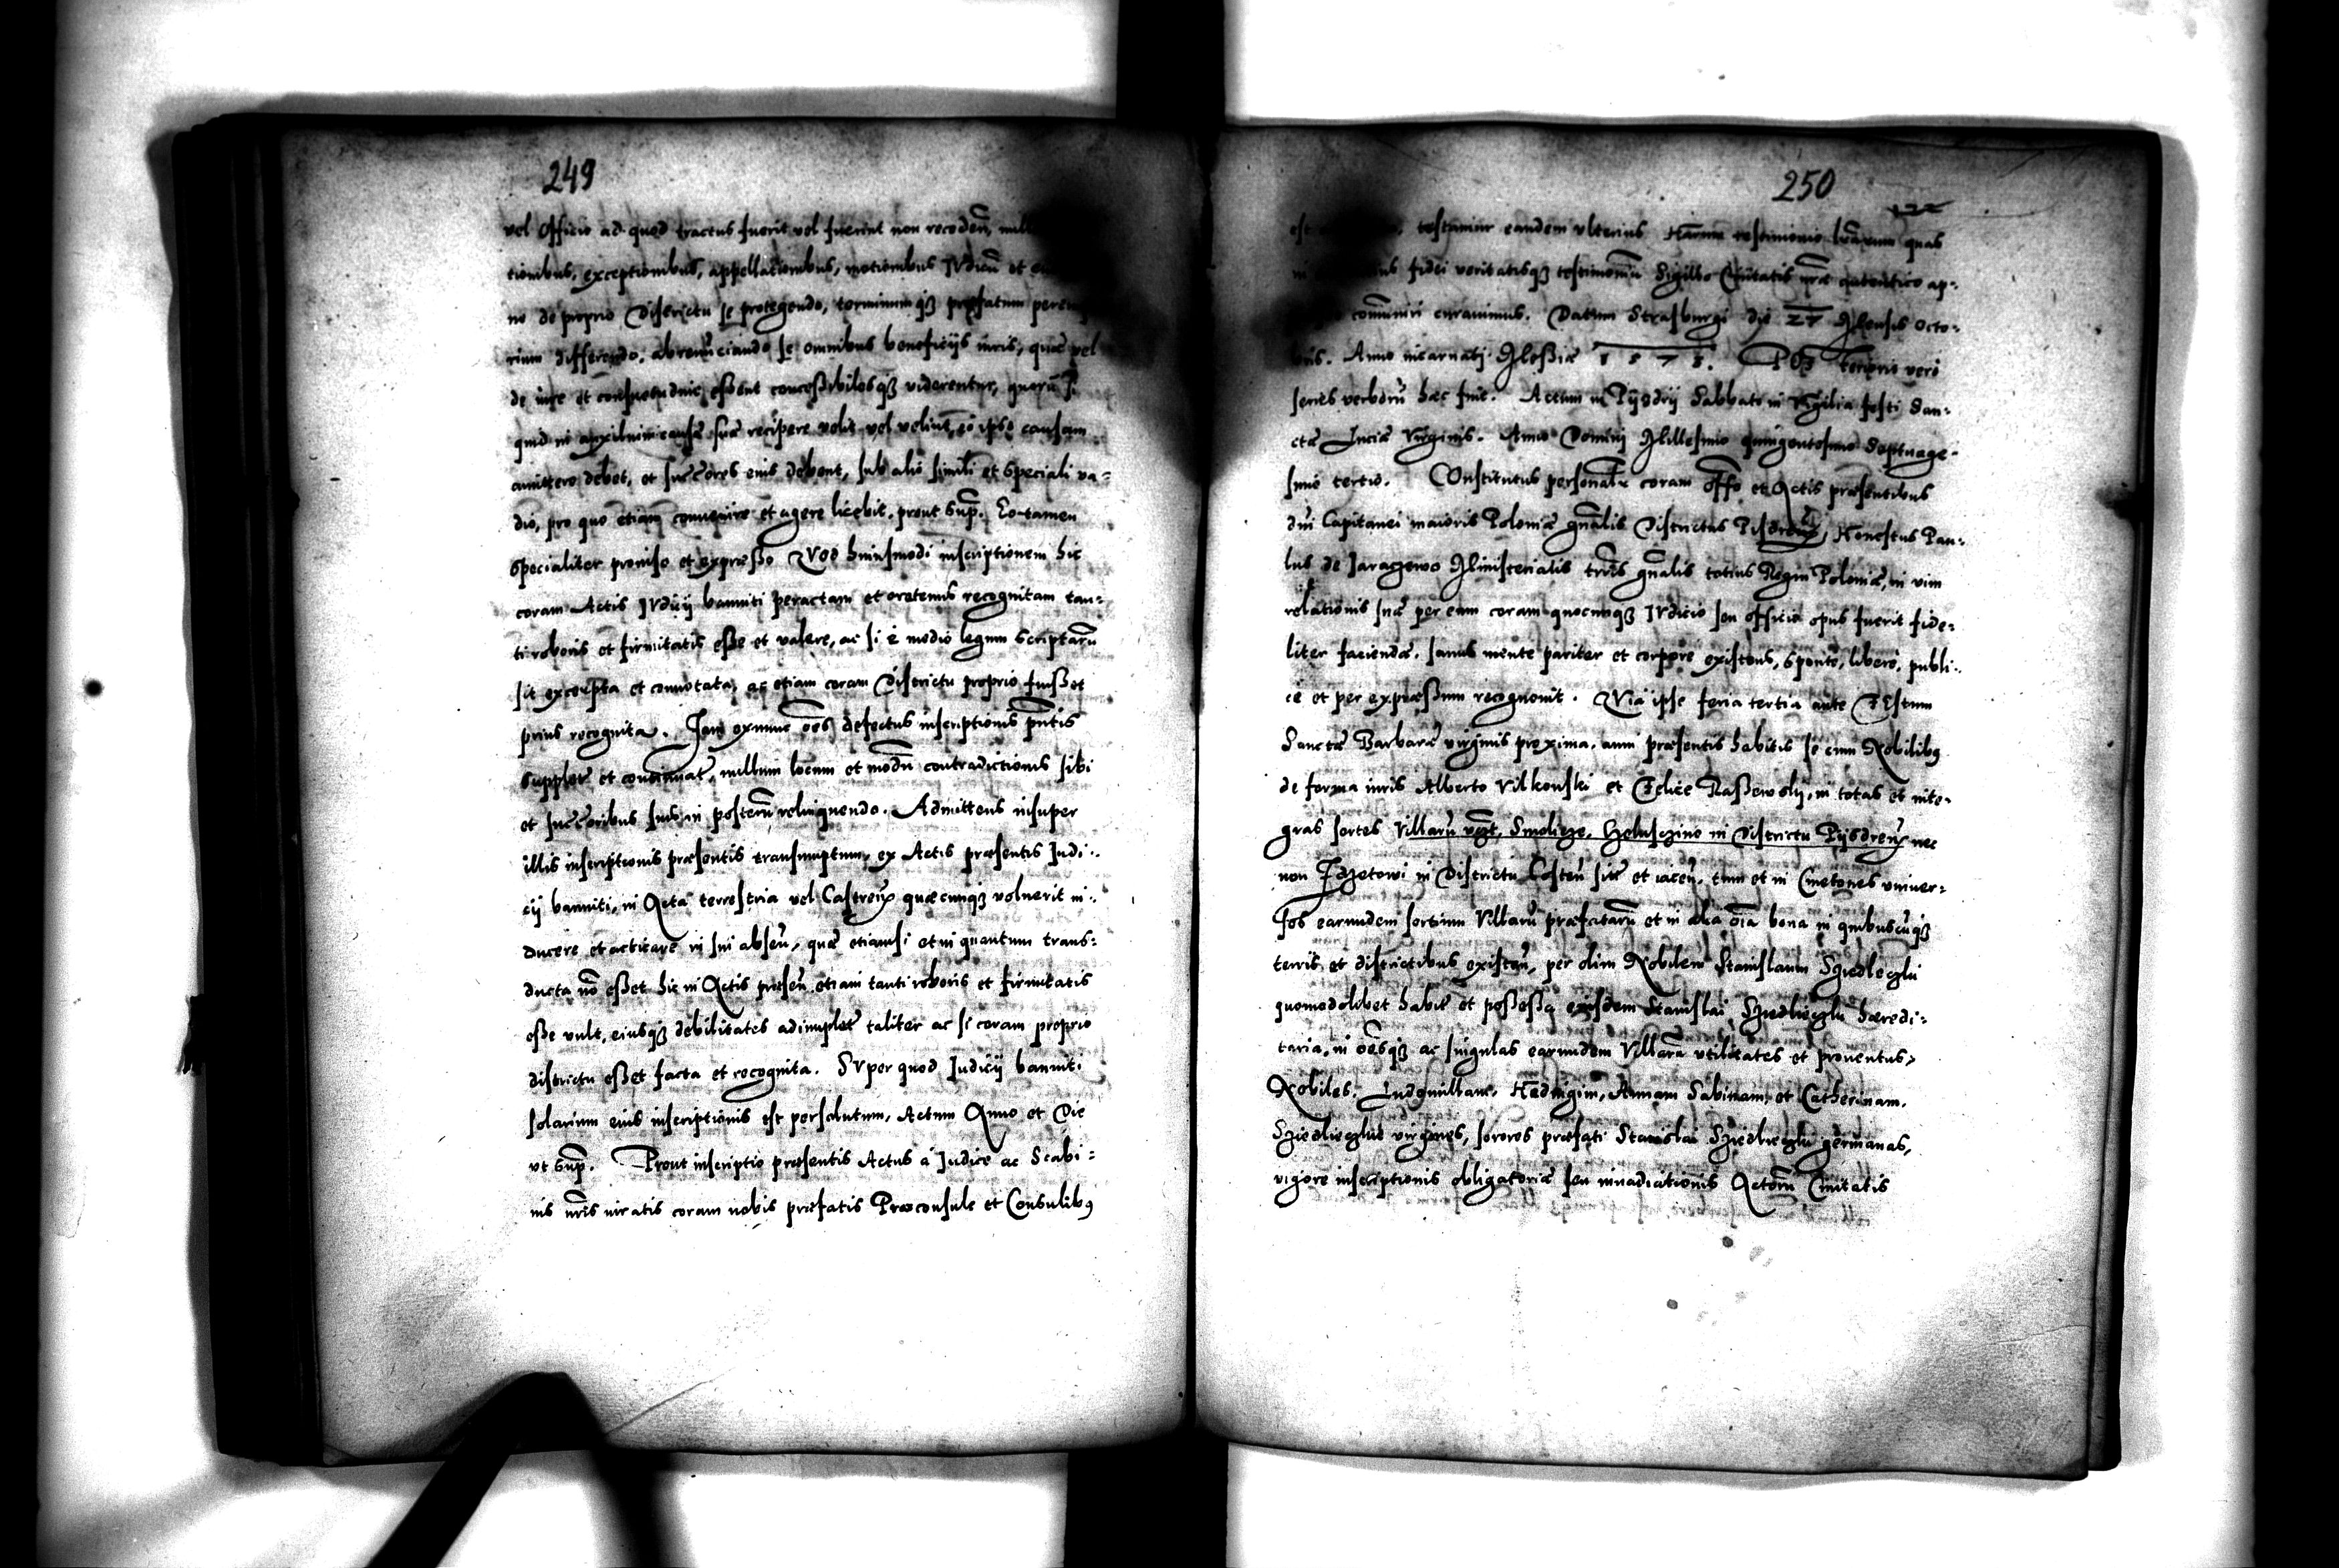 249
vel Officio ad quod tractus fuerit vel fuerint non receden̄,
tionibus, exceptionibus, appellationibus, motionibus IVdicū et
no de proprio Districtu se protegendo, terminumqȝ præfatum
rium differendo, abrenūciando se omnibus beneficijs iuris, quæ vel
de iure et consuetudine essent concessibilesqȝ viderentur, quorū si
quid in auxilium causæ suæ recipere velit vel velint, eo ipso causam
amittere debet, et succōres eius debent, sub alio simili et speciali va=
dio, pro quo etiam convenire et agere licebit, prout sup̄. Eo tamen
specialiter proviso et expresso Vod huiusmodi inscriptionem hic
coram Actis IVdicij banniti peractam et oretenus recognitam tan=
ti roboris et firmitatis esse et valere, ac si è medio legum scriptarū
sit excerpta et connotata, ac etiam coram Districtu proprio fuisset
prius recognita. Iam exnunc oēs defectus inscriptionis pn̄tis
supplet et continuat, nullum locum et modū contradictionis sibi
et succōribus suis in posterū relinquendo. Admittens insuper
illis inscriptionis præsentis transumptum, ex Actis præsentis Iudi=
cij banniti, in Acta terrestria vel Castren̄ quæcunqȝ voluerit in=
ducere et acticare in sui absen̄, quæ etiamsi et in quantum trans=
ducta nō esset hic in Actis præsen̄ etiam tanti roboris et firmitatis
esse vult, eiusqȝ debilitates adimplet taliter ac si coram proprio
districtu esset facta et recognita. SVper quod Iudicij banniti
solarium eius inscriptionis est persolutum, Actum Anno et Die
vt sup̄. Prout inscriptio præsentis Actus à Iudice ac Scabi=
nis nr̄is iuratis coram nobis præfatis Præconsule et Consulibus
250
est testamur eandem vlterius Harum testimonio lr̄arum quas
fidei veritatisqȝ testimoniū Sigillo Ciuitatis nr̄æ autentico ap=
com̄uniri curauimus. Datum Strasburgi die 27 Mensis Octo=
bris. Anno incarnati Messiæ 1573. tenoris verò
series verborū hæc finit. Actum in Pijsdrij Sabbato in Vigilia festi San=
ctæ Luciæ Virginis. Anno Domini Millesimo quingentesimo Septuage=
simo tertio. COnstitutus personalr̄ coram offō et Actis præsentibus
dn̄i Capitanei maioris Poloniæ gn̄alis Districtus Pisdren̄, Honestus Pau=
lus de Jaraczewo Ministerialis trr̄is gn̄alis totius Regni Poloniæ, in vim
relationis suæ per eum coram quocunqȝ IVdicio seu officio opus fuerit fide=
liter faciendæ, sanus mente pariter et corpore existens, sponte, liberè, publi=
cè et per expressum recognouit. Via ipse feria tertia ante FEstum
Sanctæ Barbaræ virginis proxima, anni præsentis habitis se cum Nobilibus
de forma iuris Alberto Vilkouski et Felice Rassewski, in totas et inte=
gras sortes Villarū vczt, Smolicze, in Districtu Pijsdren̄ nec
non in Districtu Costen̄ sitæ et iacen̄, tum et in Cmetones vniuer=
sos earundem sortium Villarū præfatarū et in alia oīa bona in quibuscūqȝ
terris et districtibus existen̄, per olim Nobilem Stanislaum Sziedleczki
quomodolibet habitæ et possessa eiusdem Stanislai Sziedlieczki hæredi=
taria, in oēsqȝ ac singulas earundem Villarū vtilitates et prouentus,
Nobiles. Ludmillam, Hedvigim, Annam Sabinam, et Catherinam.
Sziedliezkie virgines, sorores præfati Stanislai Sziedlieczki germanas,
vigore inscriptionis obligatoriæ seu inuadiationis Actorū Ciuitatis